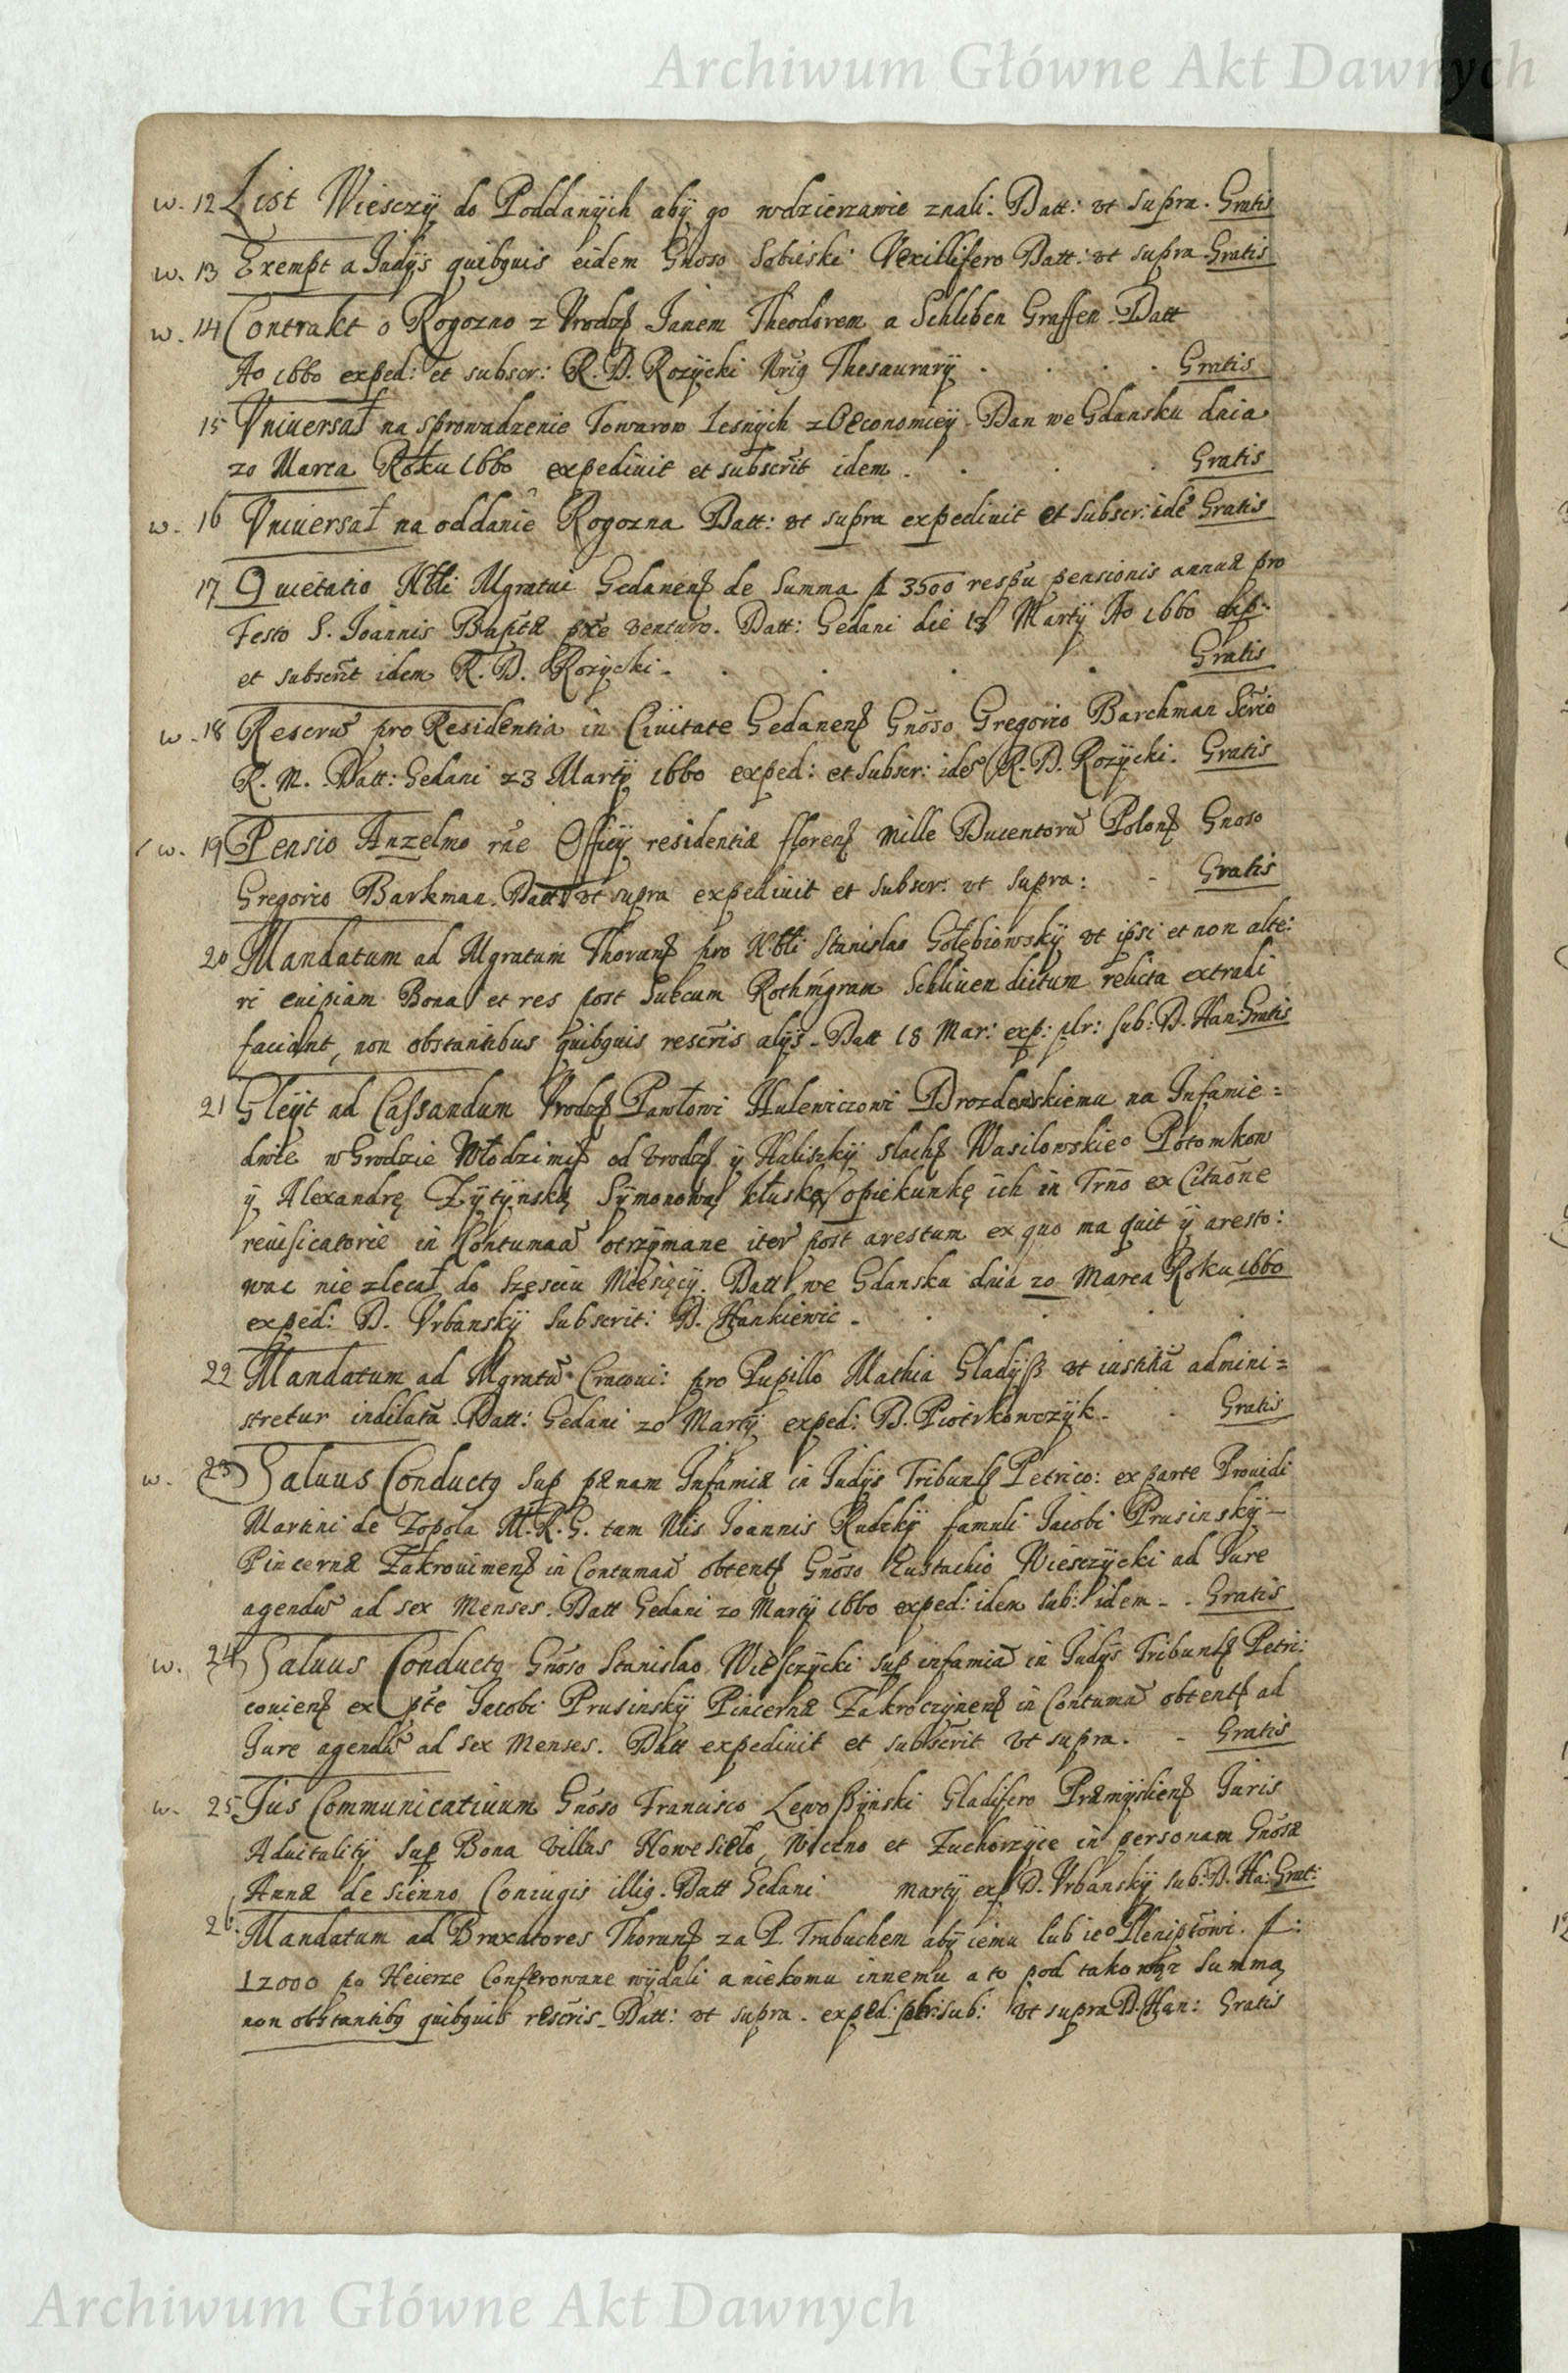 Archiwum Główne Akt Dawnych
w. 12 List Wiesczÿ do Poddanÿch abÿ go wdzierzawie znali. Datt: vt supra. Gratis
w. 13 Exempt a Judÿs quibquis eidem Gnoso Sobieski Vexillifero Datt: vt supra Gratis
w. 14 Contrakt o Rogozno z Vrodz Janem Theodorem a Schliben Graffen Datt
Ao 1660 exped: et subscr: R. D. Rozÿcki Thesaurarÿ . . . . Gratis
15 Vniuersał na sprowadzenie Towarow Lesnÿch z Oeconomieÿ Dan we Gdansku dnia
20 Marca Roku 1660 expediuit et subscrit idem . . . Gratis
w. 16 Vniuersał na oddanie Rogozna Datt: vt supra expediuit et subscr: idē Gratis
17 Quietatio Nbli Mgratui Gedanens de Summa 3500 respu pensionis annuæ pro
Festo S. Joannis Baptæ pxe venturo. Datt: Gedani die 13 Martÿ Ao 1660
et subscrit idem R. D. Rozÿcki . . . Gratis
w. 18 Reseruū pro Residentia in Ciuitate Gedanens Gnoso Gregorio Barchman Scrio
R. M. Datt: Gedani 23 Martÿ 1660 exped: et subscr: idē R. D. Rozÿcki. Gratis
w. 19 Pensio Anzelmo rne Officÿ residentiæ florens mille Ducentorū Polons Gnoso
Gregorio Barkman. Datt vt supra expediuit et subscr: vt supra: - Gratis
20 Mandatum ad Mgratum Thoruns pro Nbli Stanislao Gołebiowskÿ vt ipsi et non alte:
ri cuipiam Bona et res post Rothmgram Schliuen dictum relicta extradi
faciant, non obstantibus quibquis rescris alÿs. Datt 18 Mar: exp: sub: D. Han: Gratis
21 Gleÿt ad Cassandum Vrodz Pawłowi Hulewiczowi Drozdenskiemu na Infamie=
dwie w Grodzie Włodzimis od Vrodz ÿ Haliszkÿ slach Wasilowskieo Potomkow
ÿ Alexandrę Zÿtÿnską Sÿmonową Kłuską opiekunkę ich in Trno ex Citaōne
reuisicatorie in Contumaā otrzÿmane iter post arestum ex quo ma quit ÿ aresto:
wac nie zlecał do szesciu Miesięcÿ. Datt we Gdansku dnia 20 Marca Roku 1660
exped: D. Vrbanskÿ Subscrit: D. Hankiewic . . . .
22 Mandatum ad Mgratū Cracoui: pro Pupillo Mathia Gladÿß vt iustitiā admini=
stretur indilatā Datt: Gedani 20 Martÿ exped: D. Piotrkowczÿk . . Gratis
w. 23 Saluus Conductg sup pænam Infamiæ in Judÿs Tribunls Petrico: ex parte Prouidi
Martini de Topola M.R.G. tam Nlis Joannis Rudzkÿ famuli Jacobi Prusinskÿ
Pincernæ Zakrouimens in Contumaā obtents Gnoso Eustachio Wiesczÿcki ad Jure
agendū ad sex Menses. Datt Gedani 20 Martÿ 1660 exped: idem sub: idem . Gratis
w. 24 Saluus Conductg Gnoso Stanislao Wiesczÿcki sup infamiā in Judÿs Tribunls Petri:
couiens ex pte Jacobi Prusinskÿ Pincernæ Zakroczÿnens in Contumaā obtents ad
Jure agendū ad sex Menses. Datt expediuit et subscrit vt supra. - Gratis
w. 25 Jus Communicatiuum Gnoso Francisco Lewoßÿnski Gladifero Præmÿsliens Juris
Aduitalitÿ sup Bona villas Nowe sieło, Wiczno et Zuchorzÿce in personam Gnosæ
Annæ de Sienno Coniugis illig. Datt Gedani Martÿ exp D. Vrbanskÿ sub: D. Ha: Grat:
26 Mandatum ad Braxatores Thoruns za P. Trabuchem abÿ iemu lub ieo Plenipłowi. f:
12000 po Heierze Conferowane wÿdali a niekomu innemu a to pod takowąz Summą
non obstantibg quibguis rescris. Datt: vt supra. exped: sub: vt supra D. Han: Gratis
Archiwum Główne Akt Dawnych